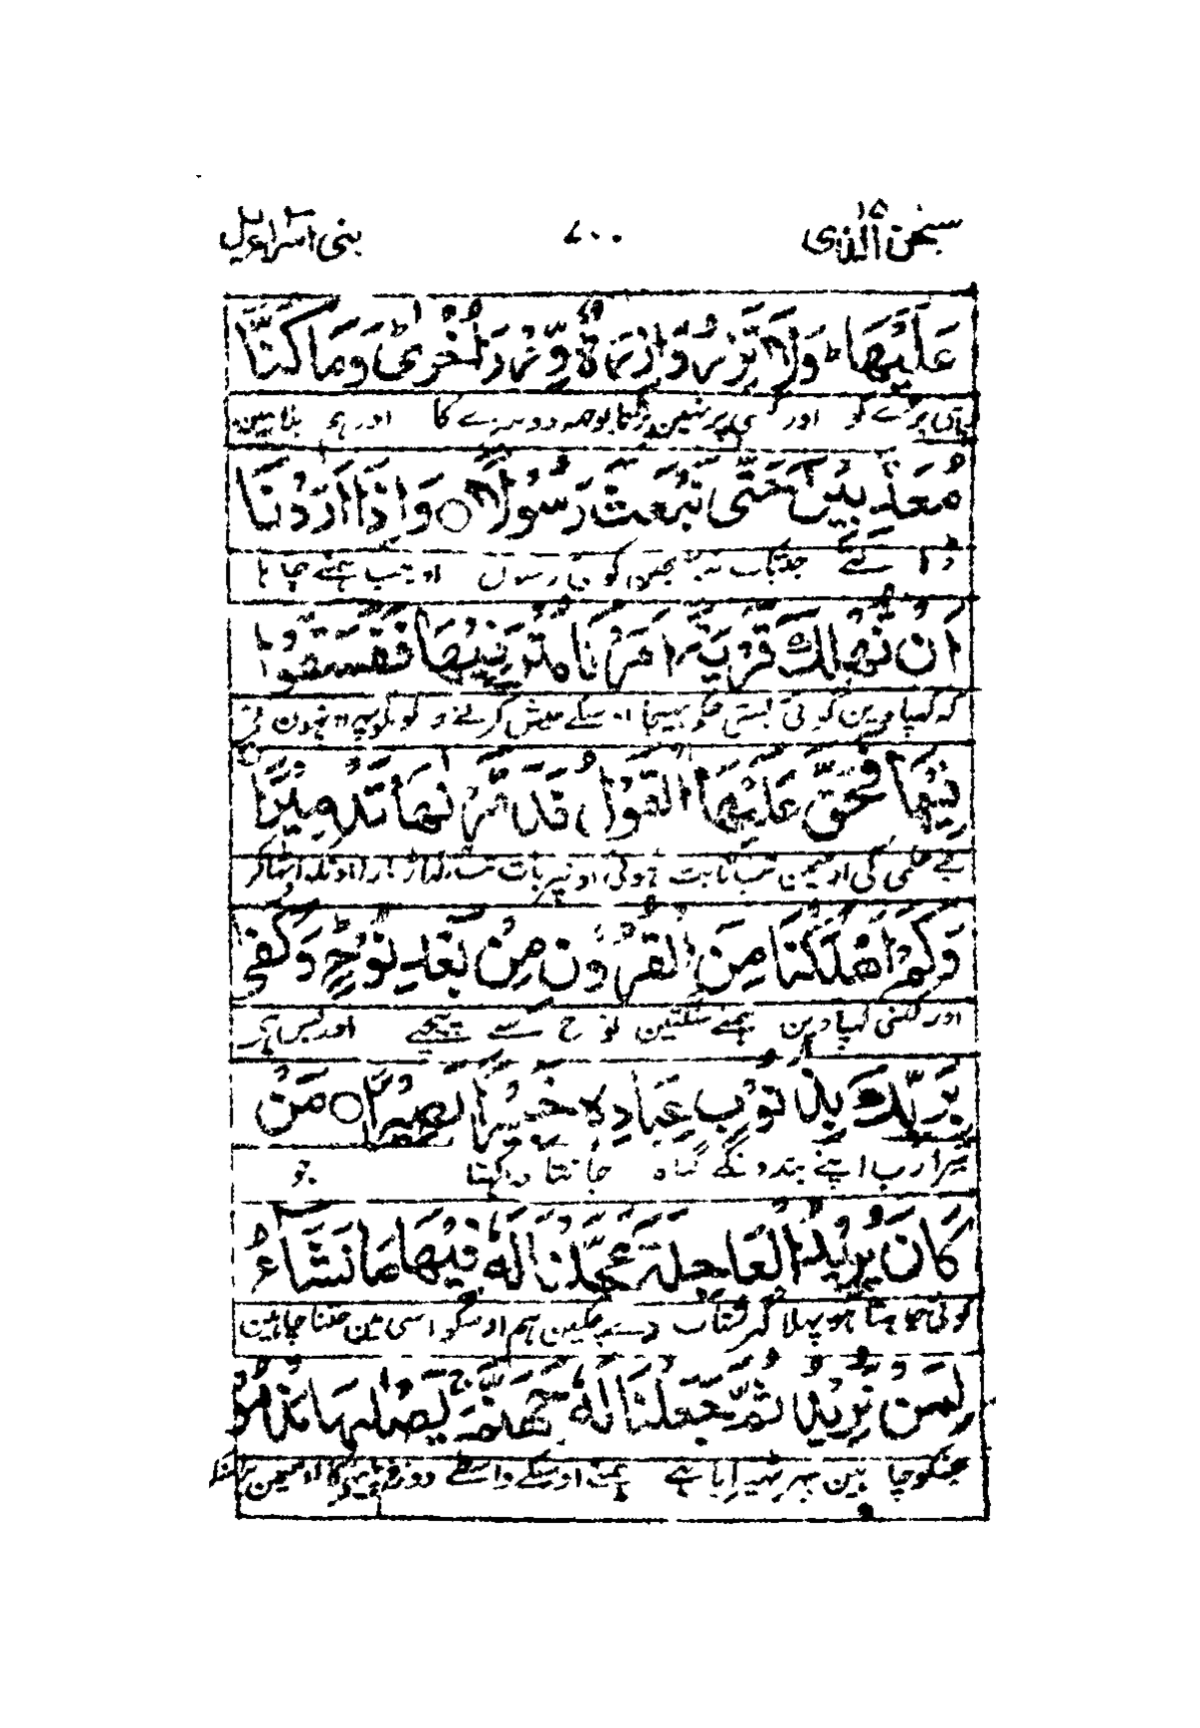 سبحٰن الذی ۱۵ ۷۰۰ بنی اسرآءیل
عَلَيْهَا ؕ وَلَا تَزِرُ وَازِرَةٌ وِّزْرَ اُخْرٰى ؕ وَمَا كُنَّا
اور کسی پر نہین پڑتا بوجھ دوسرے کا اور ہم بلا نہین
مُعَذِّبِيْنَ حَتّٰى نَبْعَثَ رَسُوْلًا ○ وَاِذَا اَرَدْنَا
ڈالتے جبتک نہ بھیجین کوئی رسول اور جب ہمنے چاہا
اَنْ نُّهْلِكَ قَرْيَةً اَمَرْنَا مُتْرَفِيْهَا فَفَسَقُوْا
کہ کھپاوین کوئی بستی حکم بھیجا اوسکے عیش کرنے
فِيْهَا فَحَقَّ عَلَيْهَا الْقَوْلُ فَدَمَّرْنٰهَا تَدْمِيْرًا
بے حکمی کی اوسمین تب ثابت ہوئی اونپر بات تب اوٹھاکر
وَكَمْ اَهْلَكْنَا مِنَ الْقُرُوْنِ مِنْ بَعْدِ نُوْحٍ ؕ وَكَفٰى
اور کتنی کھپادین ہمنے سنگتین نوح سے پیچھے اور بس ہے
بِرَبِّكَ بِذُنُوْبِ عِبَادِهٖ خَبِيْرًا بَصِيْرًا ○ مَنْ
تیرا رب اپنے بندونکے گناہ جانتا دیکھتا جو
كَانَ يُرِيْدُ الْعَاجِلَةَ عَجَّلْنَا لَهٗ فِيْهَا مَا نَشَآءُ
کوئی چاہتا ہو پہلا گھر شتاب دے چکین ہم اوسکو اسی مین جتنا چاہین
لِمَنْ نُّرِيْدُ ثُمَّ جَعَلْنَا لَهٗ جَهَنَّمَ ۚ يَصْلٰىهَا مَذْمُوْ
جسکو چاہین پھر ٹھہرایا ہے ہمنے اوسکے واسطے دوزخ